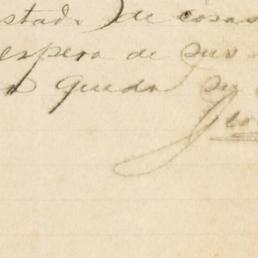 estado de cosas
espera de sus
queda su